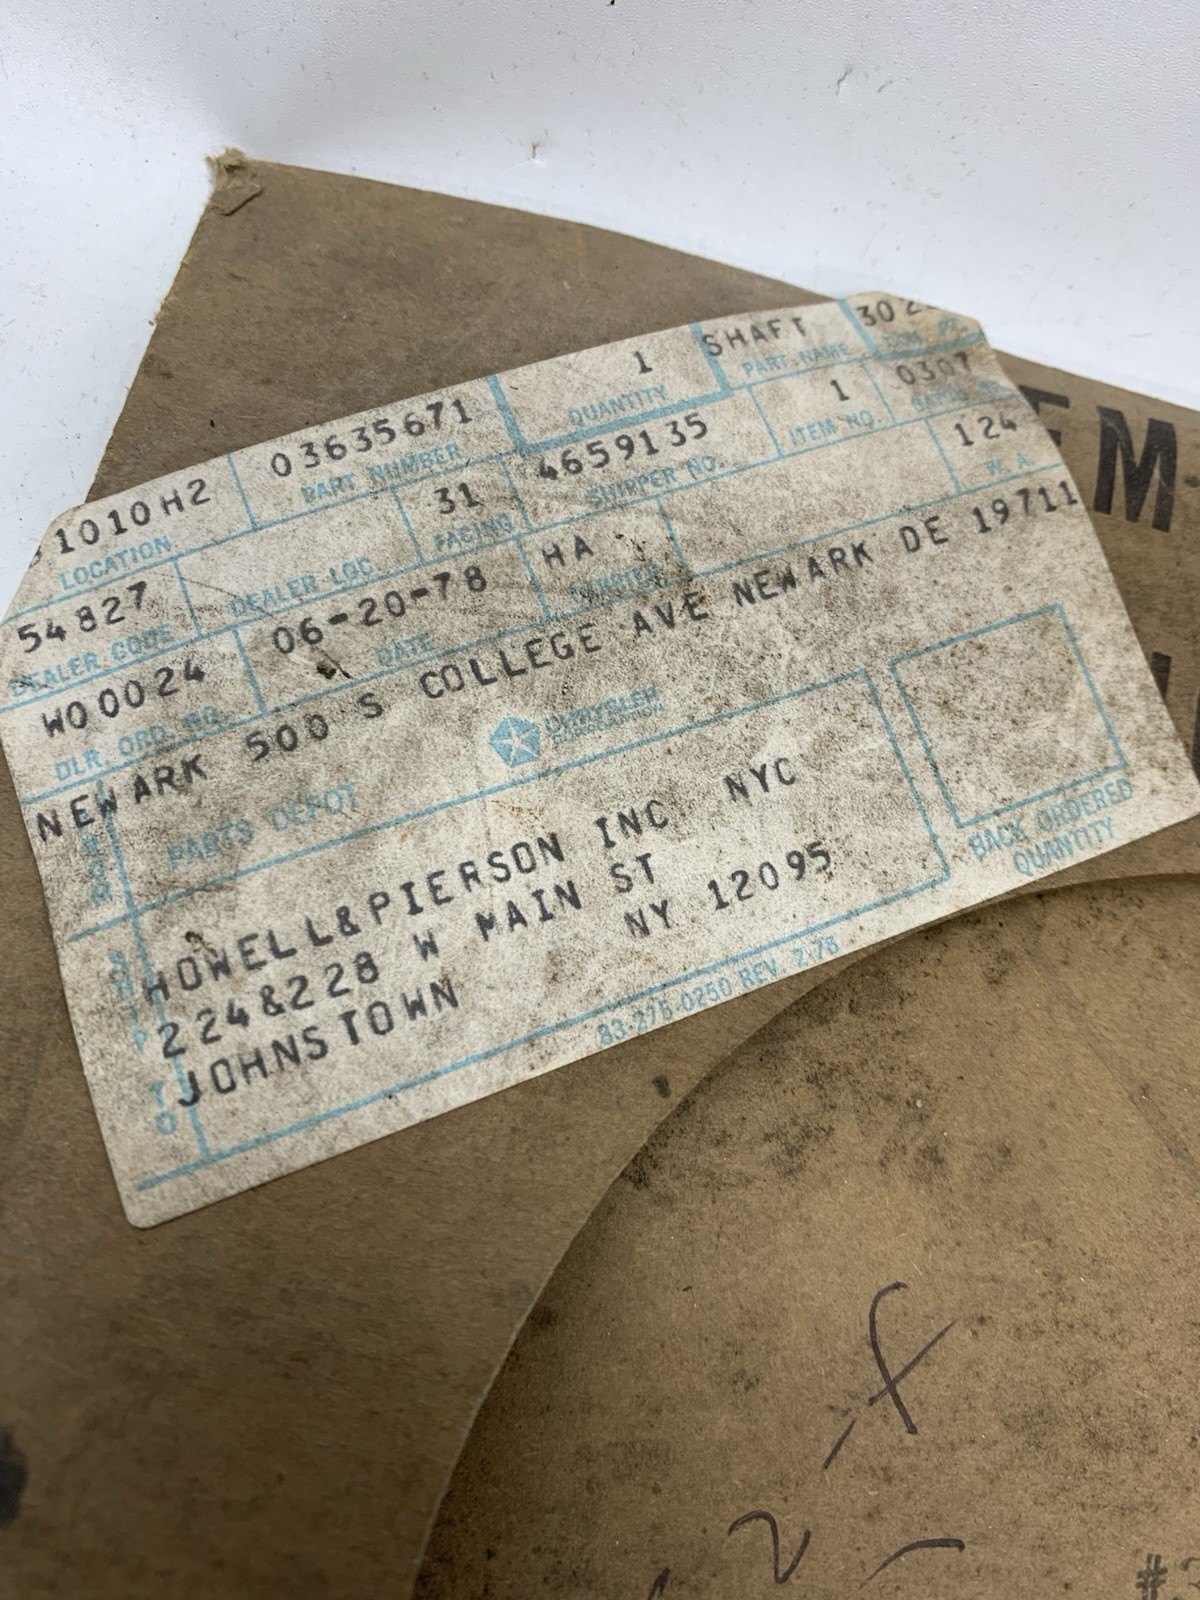 1010H2 03635671 1 SHAFT 302
LOCATION PART NUMBER QUANTITY PART NAME
54827 31 4659135 1 0307
DEALER CODE DEALER LOC. FACING SHIPPER NO. ITEM NO.
W00024 06-20-78 HA 124
DLR. ORD. NO. DATE CARRIER W. A.
NEWARK 500 S COLLEGE AVE NEWARK DE 19711
FROM
PARTS DEPOT CHRYSLER CORPORATION
SHIP TO
HOWELL&PIERSON INC NYC
224&228 W MAIN ST
JOHNSTOWN NY 12095
BACK ORDERED
QUANTITY
83-276-0250 REV. 2-76
EM